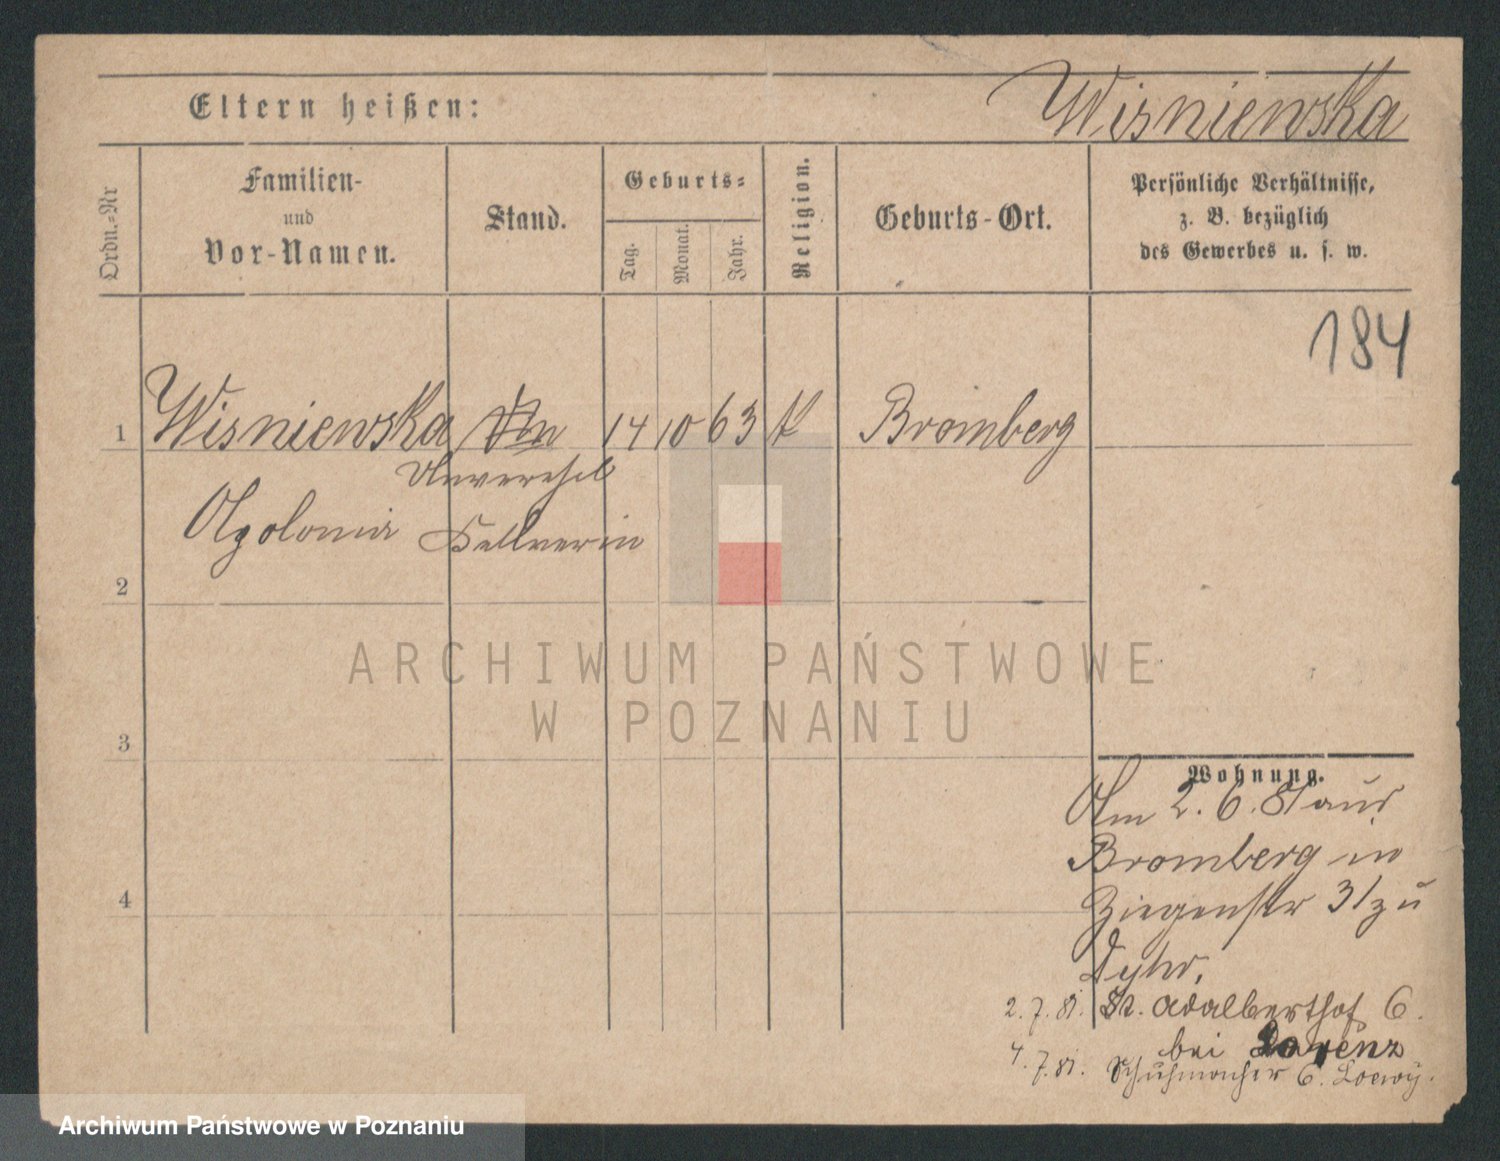 Eltern heißen:
Wisniewska
Ordn.-Nr
Familien-
und
Vor-Namen.
Stand.
Geburts-
Tag.
Monat.
Jahr.
Religion.
Geburts-Ort.
Persönliche Verhältnisse,
z. B. bezüglich
des Gewerbes u. s. w.
184
1 Wisniewska 14 10 63 k Bromberg
Unverehel
Apolonia Kellnerin
2
3
4
ARCHIWUM PAŃSTWOWE
W POZNANIU
Wohnung.
Am 2. 6. 81 aus
Bromberg in
Ziegenstr 31 zu
2. 7. 81. St. Adalberthof 6.
bei Lorenz
4. 7. 81. Schuhmacher 6. Loewy.
Archiwum Państwowe w Poznaniu